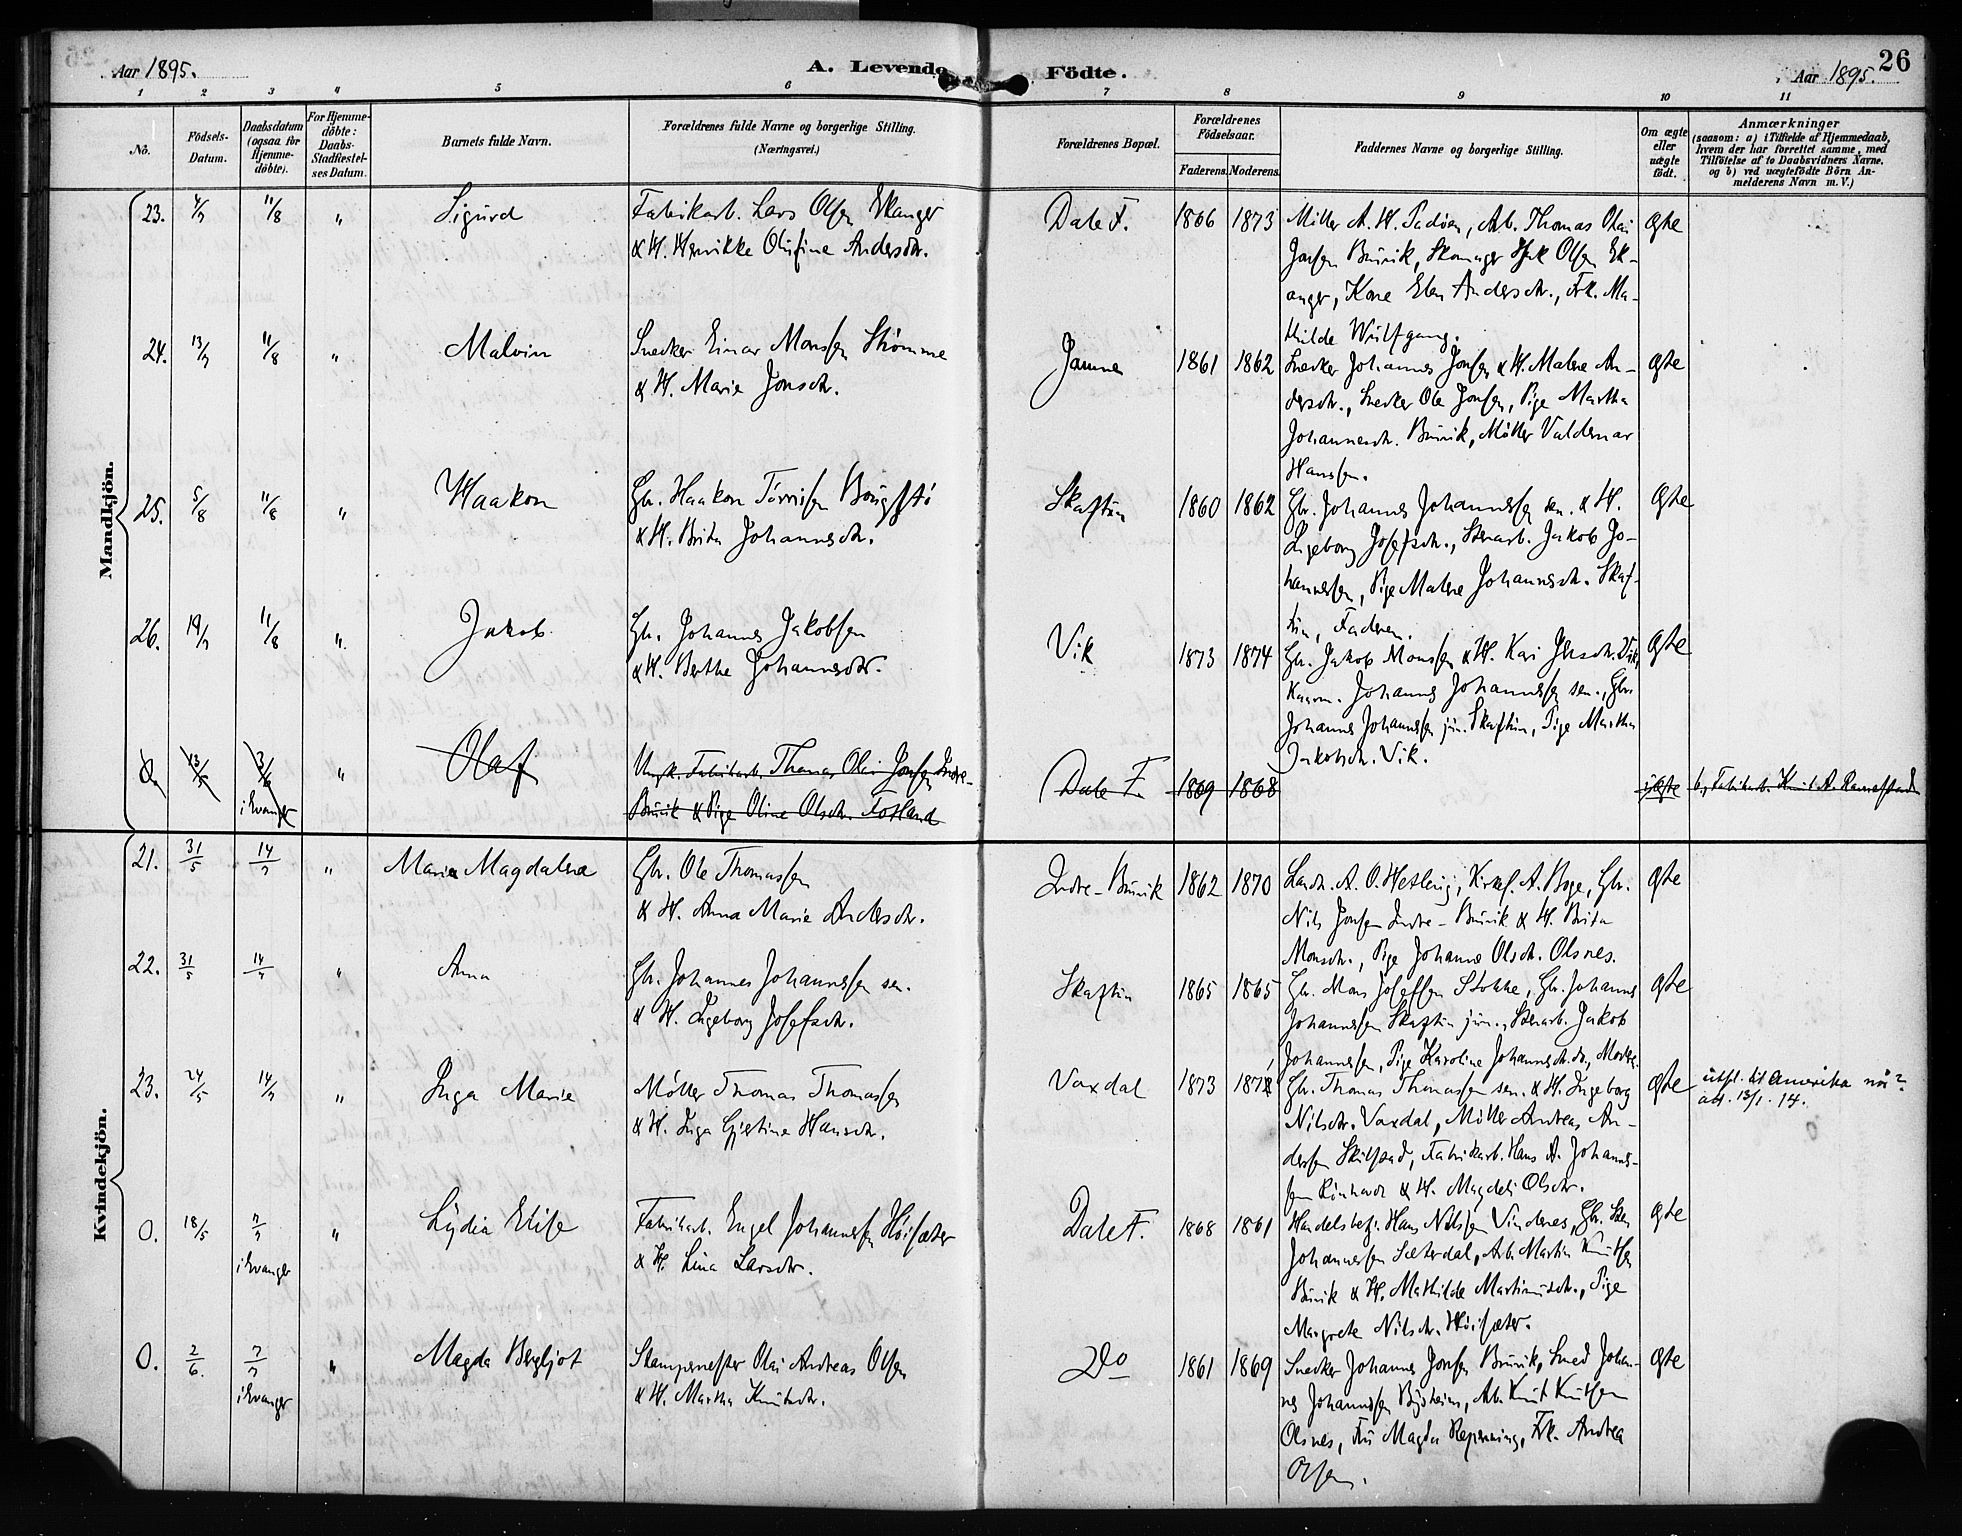 Aar 1895.
A. Levende Födte.
Aar 1895.
26
1 2 3 4 5 6 7 8 9 10 11
No.
Födsels-Datum.
Daabsdatum (ogsaa for Hjemme-döbte).
For Hjemme-döbte: Daabs-Stadfæstel-ses Datum.
Barnets fulde Navn.
Forældrenes fulde Navne og borgerlige Stilling. (Næringsvei.)
Forældrenes Bopæl.
Forældrenes Födselsaar.
Faderens. Moderens.
Faddernes Navne og borgerlige Stilling.
Om ægte eller uægte födt.
Anmærkninger
(saasom: a) i Tilfælde af Hjemmedaab,
hvem der har forrettet samme, med
Tilföielse af to Daabsvidners Navne.
og b) ved uægtefödte Börn An-
melderens Navn m. V.)
Mandkjön.
23. 4/7 11/8 " Sigurd
Fabrikarb. Lars Olsen Ekanger
& H. Henrikke Olufine Andersdr.
Dale F. 1866 1873
Møller A. W. , Arb. Thomas Olai
Jonsen Brüvik, Skomager Olsen Ek-
anger, Kone Elen Andersdr., Frk. Ma-
thilde Wulfgang.
Ægte
24. 13/7 11/8 " Malvin
Snedker Einar Monsen Strømme
& H. Marie Jonsdr.
Jamne 1861 1862
Snedker Johannes Jonsen & H. Malene An-
dersdr., Snedker Ole Jonsen, Pige Martha
Johannesdr. Brüvik, Møller Valdemar
Hansen.
Ægte
25. 5/8 11/8 " Haakon
Gbr. Haakon Børgstø
& H. Brita Johannesdr.
Skaftün 1860 1862
Gbr. Johannes Johannessen sen. & H.
Ingeborg Josefsdr., Stenarb. Jakob Jo-
hannessen, Pige Malene Johannesdr. Skaf-
tün, Faderen.
Ægte
26. 19/7 11/8 " Jakob
Gbr. Johannes Jakobsen
& H. Berthe Johannesdr.
Vik 1873 1874
Gbr. Jakob Monsen & H. Kari Vik,
Kaarm. Johannes Johannessen sen., Gbr.
Johannes Johannessen jün. Skaftün, Pige Martha
Jakobsdr. Vik.
Ægte
0. 13/5 3/6 i Evanger " Olaf
Ungk. Fabrikarb. Thomas Olai Jonsen Indre-
Brüvik & Pige Oline Olsdr. Fosland
Dale F. 1869 1868
üægte
b, Fabrikarb. Knut A. Ramsstad
Kvindekjön.
21. 31/5 14/7 " Marie Magdalena
Gbr. Ole Thomassen
& H. Anna Marie Andersdr.
Indre-Brüvik 1862 1870
Landh. A. O. Hesleuj, A. Boge, Gbr.
Nils Jonsen Indre-Brüvik & H. Brita
Monsdr., Pige Johanne Olsdr. Olsnes.
Ægte
22. 31/5 14/7 " Anna
Gbr. Johannes Johannessen sen.
& H. Ingeborg Josefsdr.
Skaftün 1865 1865
Gbr. Mons Josefsen Stokke, Gbr. Johannes
Johannessen Skaftün jün., Stenarb. Jakob
Johannessen, Pige Karoline Johannesdr. do., Modr.
Ægte
23. 24/5 14/7 " Inga Marie
Møller Thomas Thomassen
& H. Inga Gjertine Hansdr.
Vaxdal 1873 1871
Gbr. Thomas Thomassen sen. & H. Ingeborg
Nilsdr. Vaxdal, Møller Andreas An-
dersen Skilstad, Fabrikarb. Hans A. Johannes-
sen & H. Magdeli Olsdr.
Ægte
utfl. til Amerika når?
att. 13/1. 14.
0. 18/5 7/7 i Evanger " Lydia Elise
Fabrikarb. Engel Johannessen Høisæter
& H. Lina Larsdr.
Dale F. 1868 1861
Handelsbetj. Hans Nilsen Vindenes, Gbr. Sten
Johannessen Sæterdal, Arb. Martin Knutsen
Brüvik & H. Mathilde Martinusdr., Pige
Margrete Nilsdr. Høisæter.
Ægte
0. 2/6. 7/7 i Evanger " Magda Bergljot
Stampemester Olai Andreas Olsen
& H. Martha Knutsdr.
Do 1861 1869
Snedker Johannes Jonsen Brüvik, Smed Johan-
nes Johannessen Bysheim, Arb. Knut Knutsen
Olsnes, Frü Magda Repenning, Frk. Andrea
Olsen.
Ægte